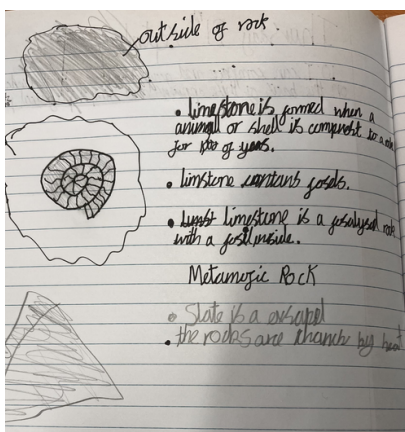 outside of rock
• limestone is formed when a
animall or shell is comprest to a
for 100 of years.
• limstone contans fosels.
• limestone is a fosalysed rock
with a fosil inside.
Metamofic Rock
• Slate is a exsapel
• the rocks are chanck by heat